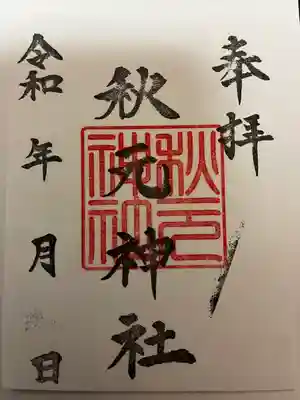 奉拝
秋元神社
秋元神社
令和 年 月 日